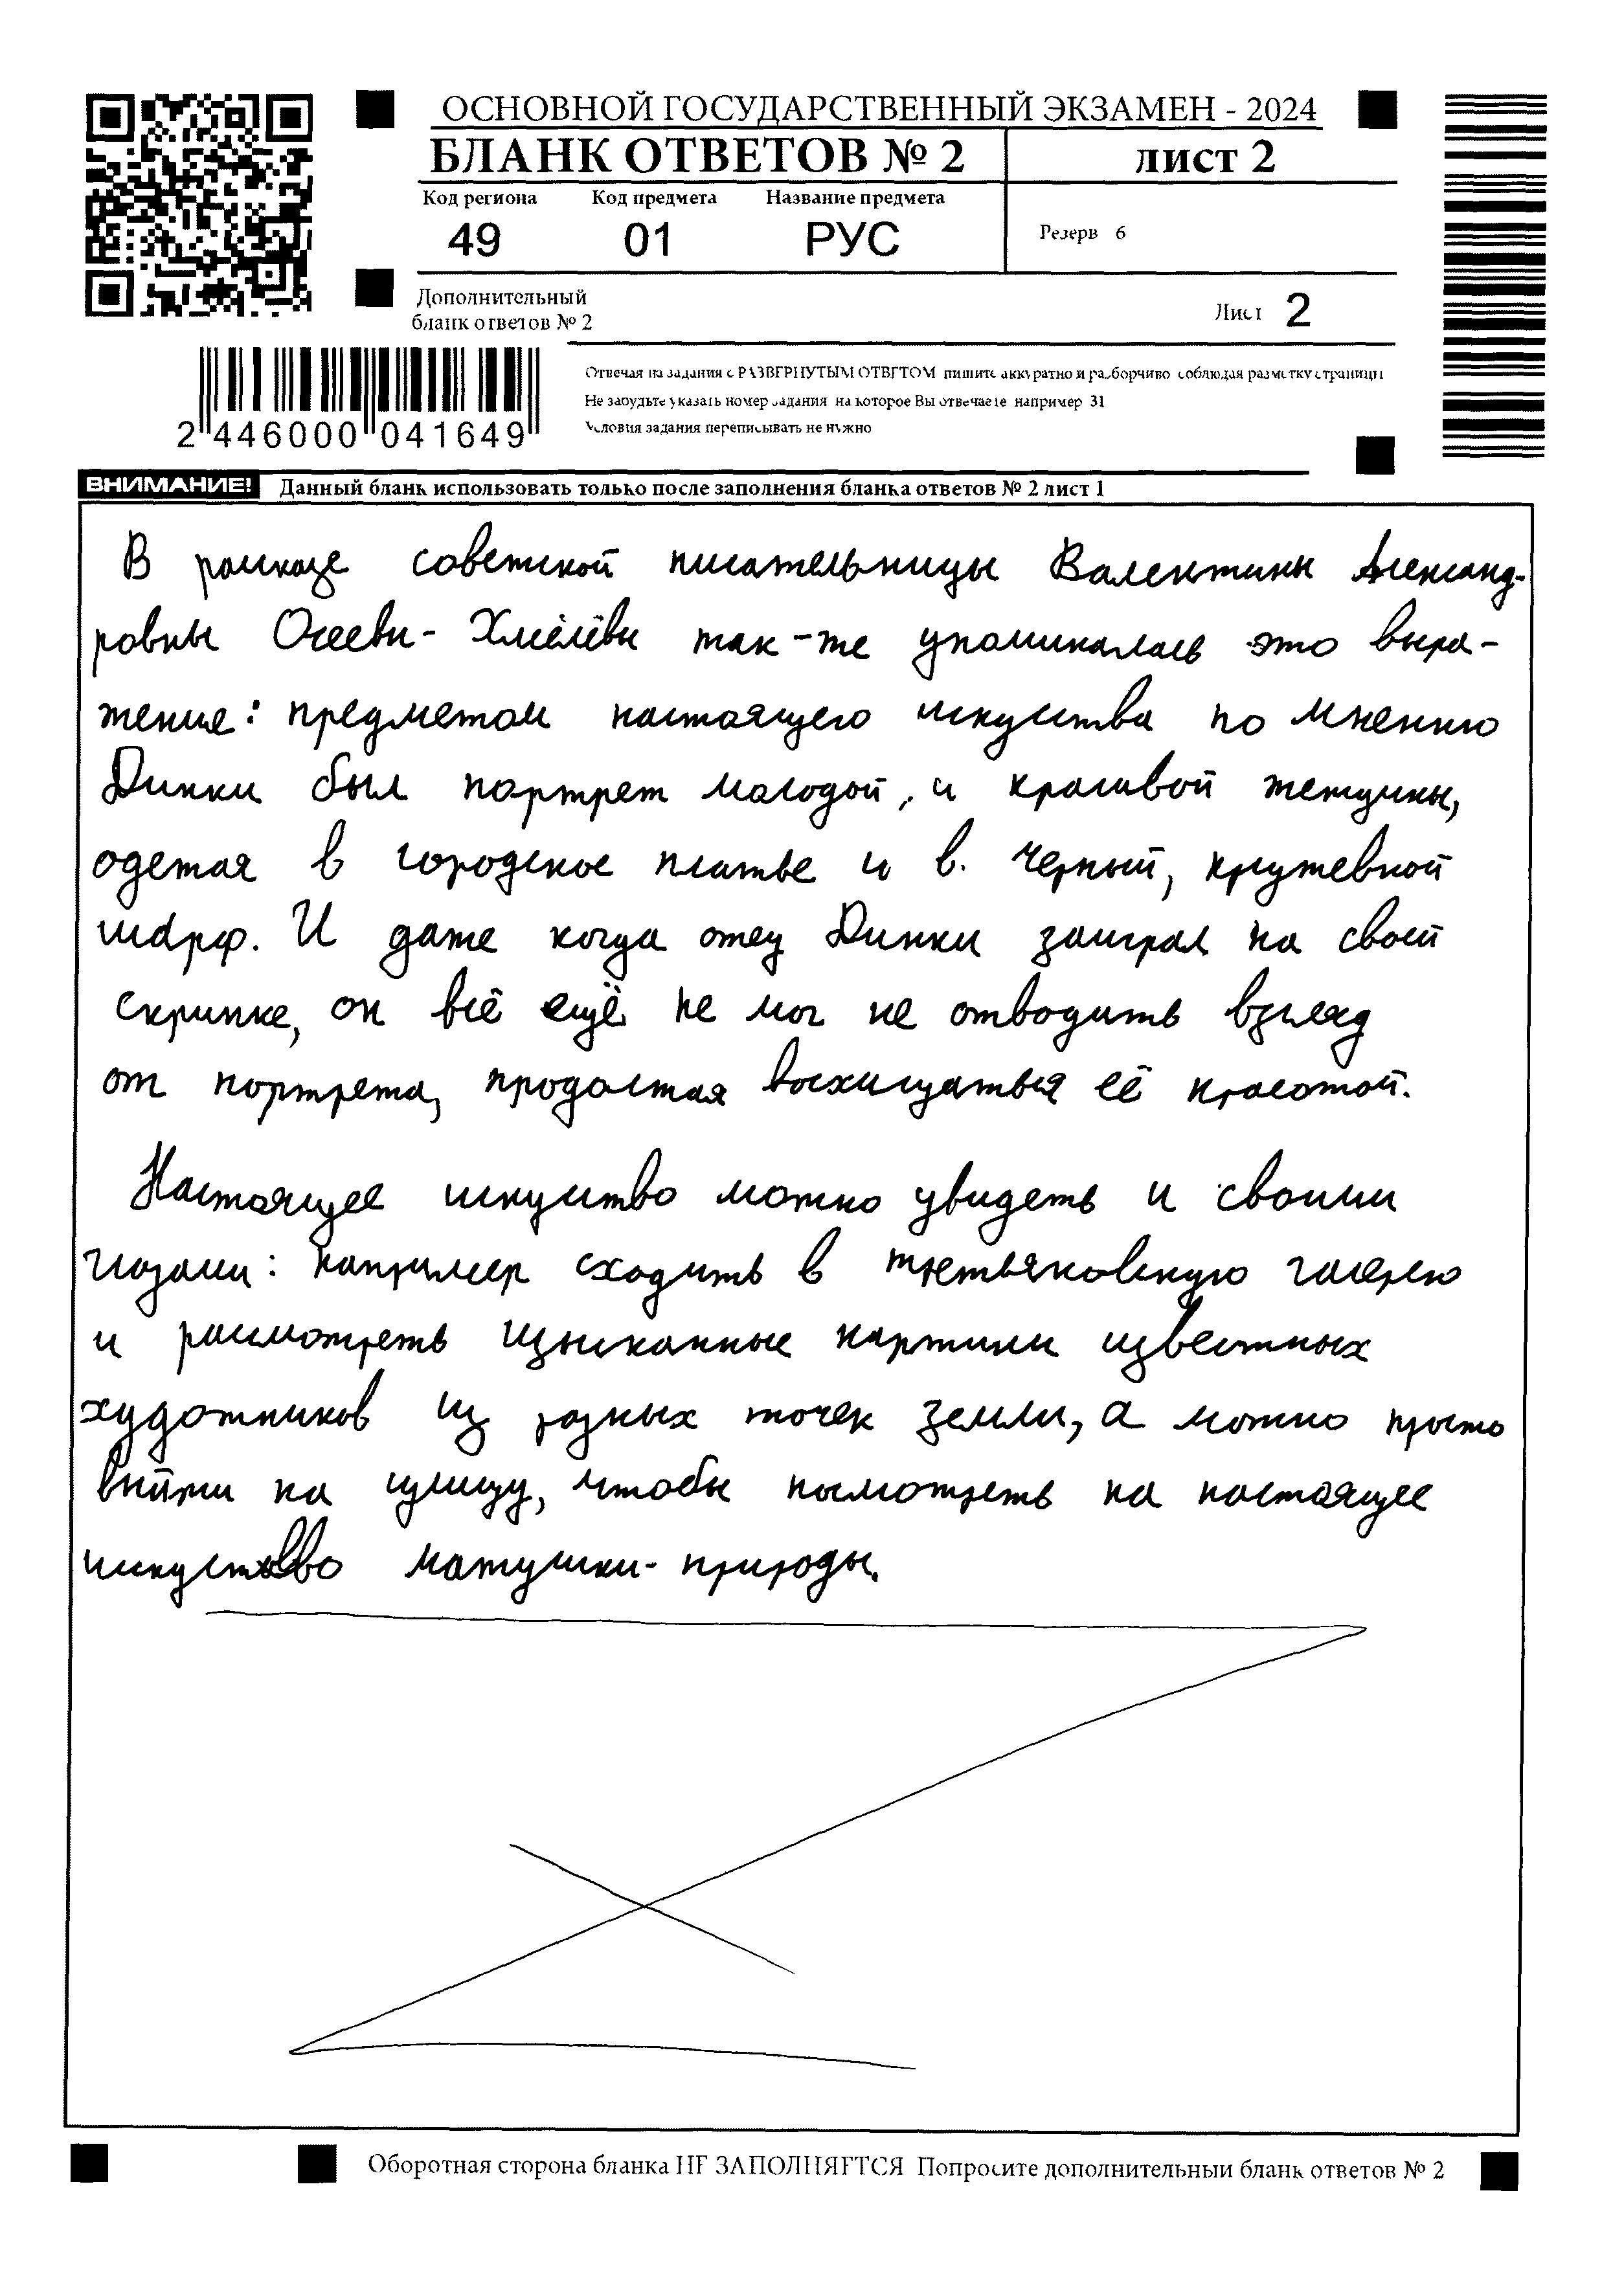 ОСНОВНОЙ ГОСУДАРСТВЕННЫЙ ЭКЗАМЕН - 2024
БЛАНК ОТВЕТОВ № 2 лист 2
Код региона Код предмета Название предмета
49 01 РУС Резерв 6
Дополнительный
бланк ответов № 2 Лист 2
Отвечая на задания с РАЗВЕРНУТЫМ ОТВЕТОМ пишите аккуратно и разборчиво соблюдая разметку страницы
Не забудьте указать номер задания на которое Вы отвечаете например 31
Условия задания переписывать не нужно
2 446000 041649
ВНИМАНИЕ! Данный бланк использовать только после заполнения бланка ответов № 2 лист 1
В рассказе советской писательницы Валентины Александ-
ровны Осеевы-Хмелёвы так-же упоминалась это выра-
жение: предметом настоящего искусства по мнению
Динки был портрет молодой, и красивой женщины,
одетая в городское платье и в. черный, кружевной
шарф. И даже когда отец Динки заиграл на своей
скрипке, он всё ещё не мог не отводить взгляд
от портрета, продолжая восхищаться её красотой.
Настоящее искуство можно увидеть и своими
глазами: например сходить в третьяковскую галерею
и рассмотреть изысканные картины известных
художников из разных точек земли, а можно просто
выйти на улицу, чтобы посмотреть на настоящее
искуство матушки-природы.
Оборотная сторона бланка НЕ ЗАПОЛНЯЕТСЯ Попросите дополнительный бланк ответов № 2